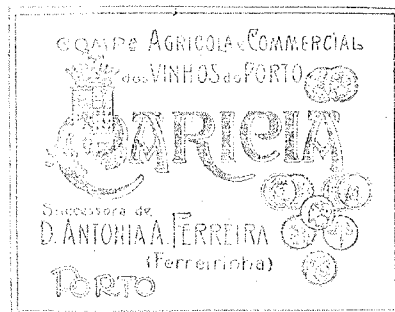 COMPª AGRICOLA e COMMERCIAL
dos VINHOS do PORTO
CARICIA
Successora de
D. ANTONIA A. FERREIRA
(Ferreirinha)
PORTO